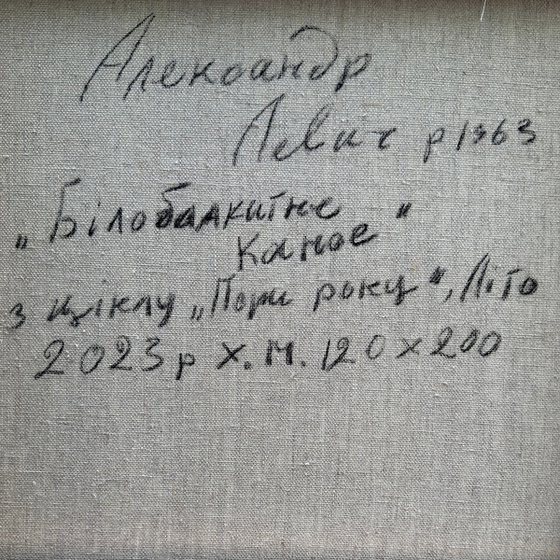 Александр
Левич р 1963
„Білобалкитне
каное"
з циклу „Пори року", Літо
2023р Х.М. 120х200